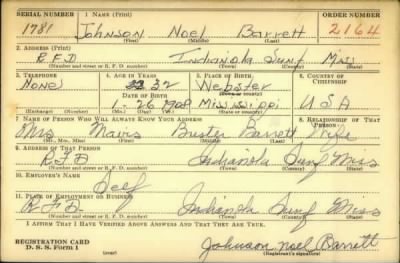 SERIAL NUMBER 1. NAME (Print) ORDER NUMBER
1781 Johnson Noel Barrett 2164
(First) (Middle) (Last)
2. ADDRESS (Print)
R.F.D. Indianola Sunf Miss
(Number and street or R. F. D. number) (Town) (County) (State)
3. TELEPHONE 4. AGE IN YEARS 5. PLACE OF BIRTH 6. COUNTRY OF CITIZENSHIP
None 32 Webster
DATE OF BIRTH (Town or county)
1-26 1908 Mississippi USA
(Exchange) (Number) (Mo.) (Day) (Yr.) (State or country)
7. NAME OF PERSON WHO WILL ALWAYS KNOW YOUR ADDRESS 8. RELATIONSHIP OF THAT PERSON
Mrs Mavis Buster Barrett Wife
(Mr., Mrs., Miss) (First) (Middle) (Last)
9. ADDRESS OF THAT PERSON
R.F.D Indianola Sunf Miss
(Number and street or R. F. D. number) (Town) (County) (State)
10. EMPLOYER'S NAME
Self
11. PLACE OF EMPLOYMENT OR BUSINESS
R.F.D. Indianola Sunf Miss
(Number and street or R. F. D. number) (Town) (County) (State)
I AFFIRM THAT I HAVE VERIFIED ABOVE ANSWERS AND THAT THEY ARE TRUE.
REGISTRATION CARD
D. S. S. Form 1 Johnson Noel Barrett
(Registrant's signature)